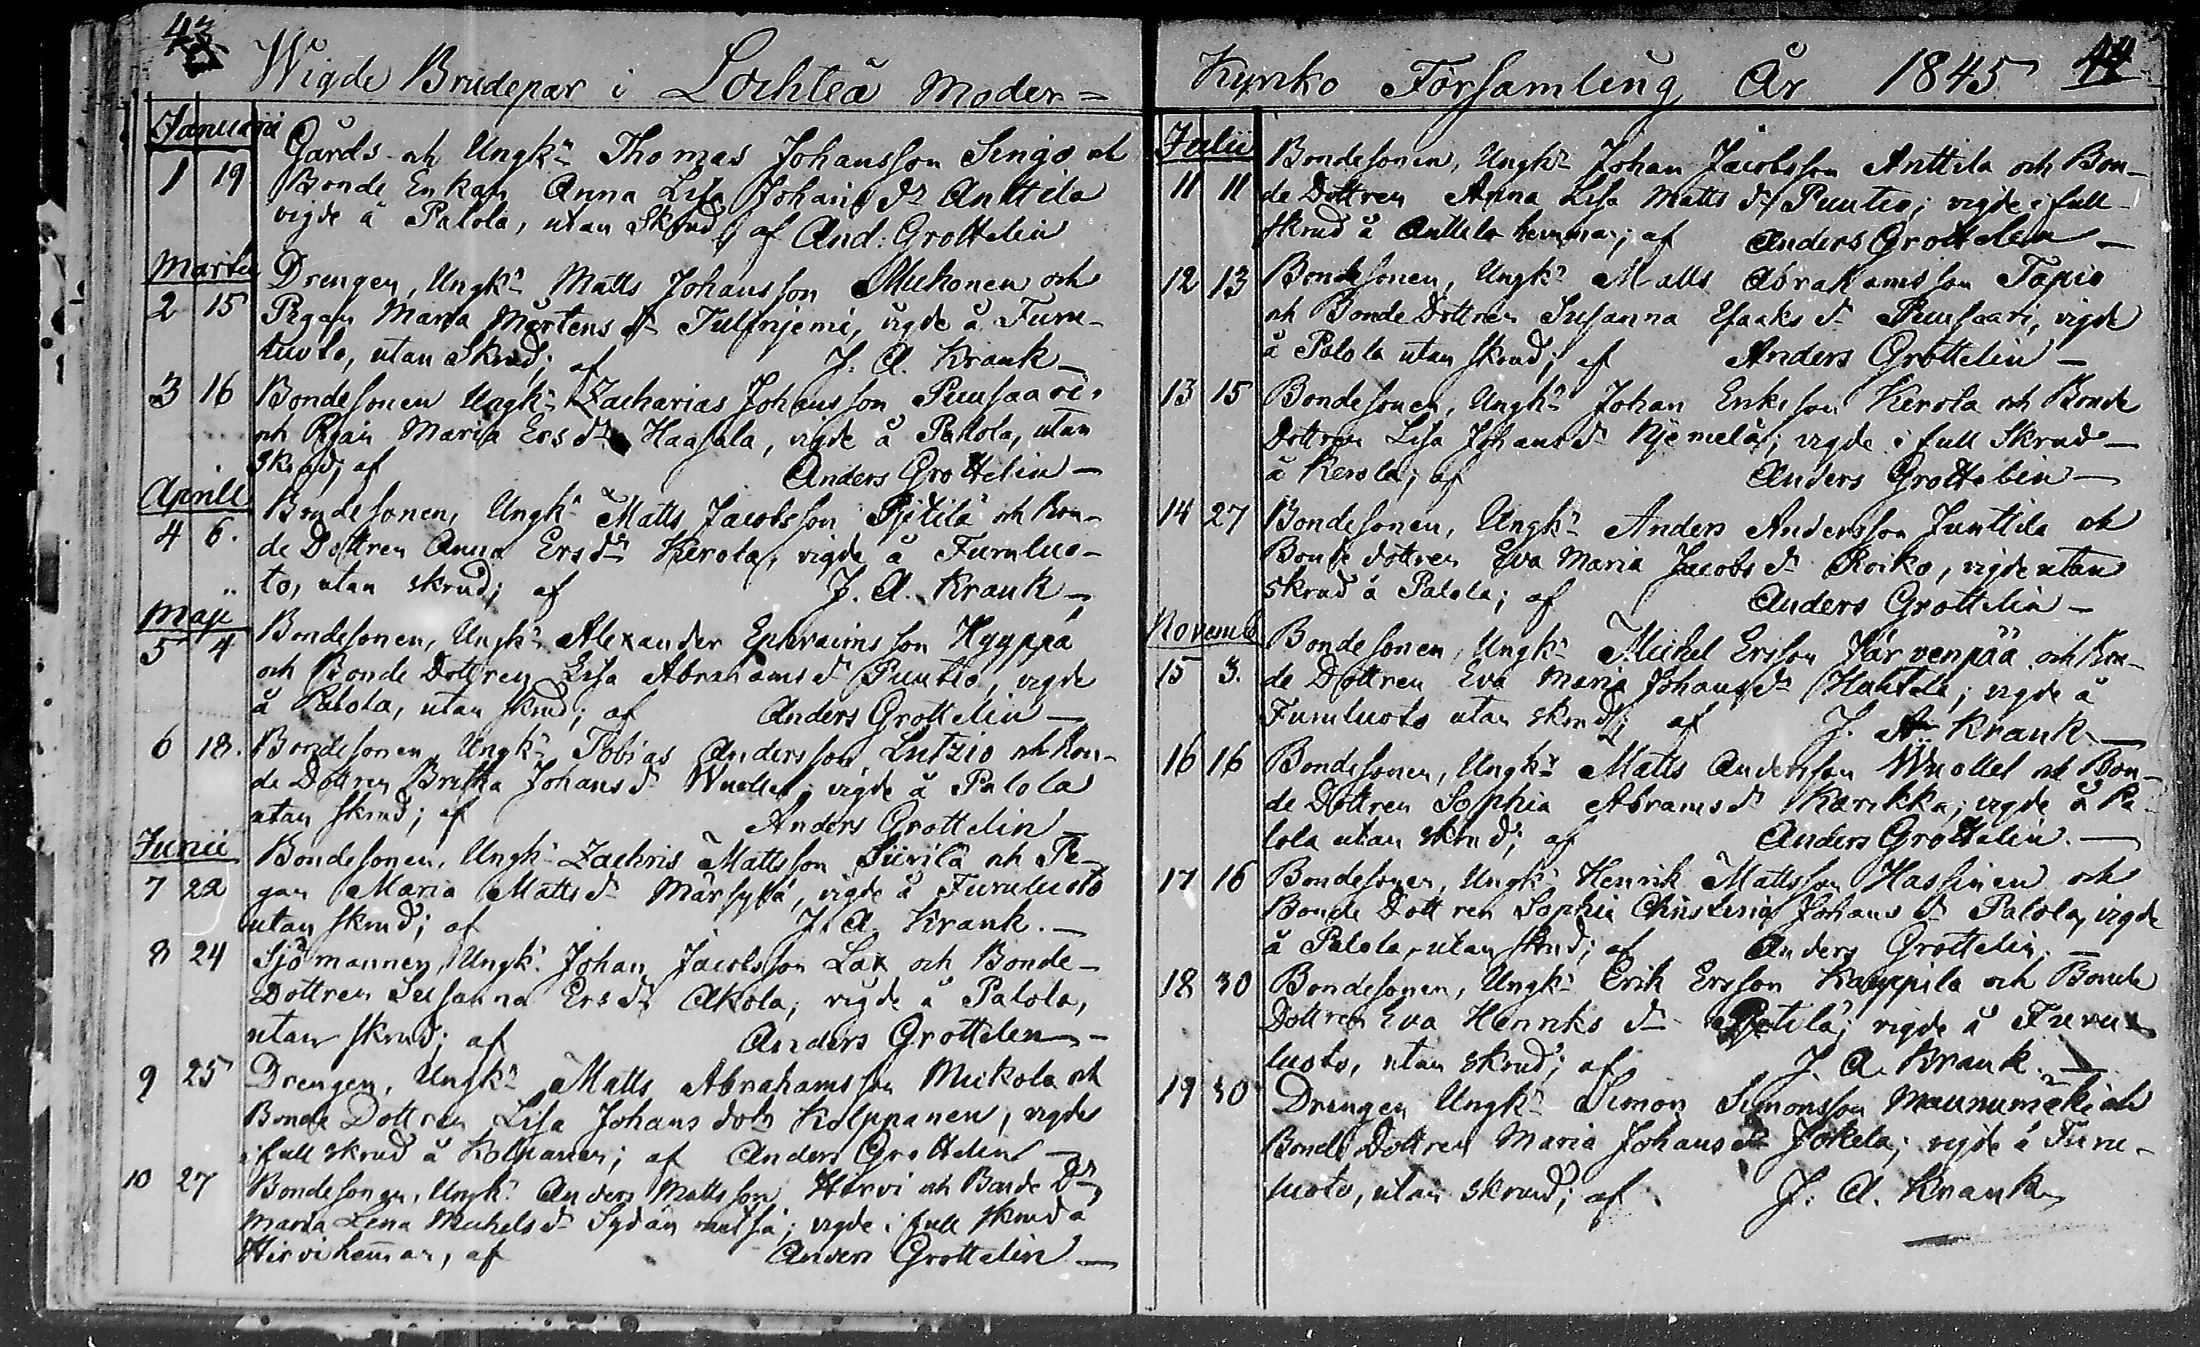 43
Wigde Brudepar i Lochteå Moder=
Januarii
1 19 Gårds- och Ungkn Thomas Johansson Singo och
Bonde Enkan Anna Lisa Johansdr Anttila
vigde å Palola, utan Skrud; af And: Grottelin
Martii
2 15 Drengen, Ungkn Matts Johansson Muhonen och
Pigan Maria Mårtensdr vigde å Furu-
luoto, utan Skrud; af J. A. Krank —
3 16 Bondesonen Ungkn Zacharias Johansson Puusaari,
och Pigan Maria Ersdr Haasala, vigde å Palola, utan
Skrud; af Anders Grottelin —
Aprill
4 6. Bondesonen, Ungkn Matts Jacobsson Pjetilä och Bon-
de Dottren Anna Ersdr Kerola, vigde å Furuluo-
to, utan skrud; af J. A. Krank —
Maji
5 4 Bondesonen, Ungkn Alexander Ephraimsson Hyyppä
och Bonde Dottren Lisa Abrahamsdr Puutio, vigde
å Palola, utan skrud; af Anders Grottelin —
6 18. Bondesonen Ungkn Tobias Andersson Lutzio och Bon-
de Dottren Britha Johansdr Wuollet; vigde å Palola
utan skrud; af Anders Grottelin
Junii
7 22 Bondesonen, Ungkn Zachris Mattsson Siirilä och Pi-
gan Maria Mattsdr Märsylä, vigde å Furuluoto
utan skrud; af J. A. Krank. —
8 24 Sjömannen, Ungkn Johan Jacobsson Lax och Bonde-
Dottren Susanna Ersdr Akola; vigde å Palola,
utan skrud; af Anders Grottelin —
9 25 Drengen, Ungkn Matts Abrahamsson Mickola och
Bonde Dottren Lisa Johans dotr Kolppanen, vigde
i full skrud å Kolpanen; af Anders Grottelin —
10 27 Bondesonen, Ungkn Anders Mattsson Hirvi och Bonde Dr
Maria Lena Michelsdr Sydänmetsä; vigde i full skrud å
Hirvi hemman, af Anders Grottelin —
Kyrko Församling År 1845 44
Julii
11 11 Bondesonen, Ungkn Johan Jacobsson Anttila och Bon-
de Dottren Anna Lisa Mattsdr Puutio; vigde i full
skrud å Anttila hemman; af Anders Grottelin —
12 13 Bondesonen, Ungkn Matts Abrahamsson Tapio
och Bonde Dottren Susanna Esaksdr Puusaari, vigde
å Palola utan skrud; af Anders Grottelin —
13 15 Bondesonen, Ungkn Johan Eriksson Kerola och Bonde
Dottren Lisa Johansdr Njemelä; vigde i full Skrud —
å Kerola; af Anders Grottelin —
14 27 Bondesonen, Ungkn Anders Andersson Junttila och
Bonde dottren Eva Maria Jacobsdr Roiko, vigde utan
skrud å Palola; af Anders Grottelin —
Novemb
15 3. Bondesonen, Ungkn Michel Ersson Järvenpää och Bon-
de Dottren Eva Maria Johansdr Hahtala; vigde å
Furuluoto utan skrud; af J. A. Krank —
16 16 Bondesonen, Ungkn Matts Andersson Wuollet och Bon-
de Dottren Sophia Abramsdr Karikka; vigde å Pa-
lola utan skrud; af Anders Grottelin. —
17 16 Bondesonen, Ungkn Henrik Mattsson Hassinen och
Bonde Dottren Sophia Christina Johansdr Palola, vigde
å Palola, utan skrud; af Anders Grottelin. —
18 30 Bondesonen, Ungkn Erik Ersson Kauppila och Bonde
Dottren Eva Henriksdr Pjetilä; vigde å Furu-
luoto, utan skrud; af J. A. Krank. —
19 30 Drengen Ungkn Simon Simonsson Maunumäki och
Bonde Dottren Maria Johansdr Jokela; vigde å Furu-
luoto, utan skrud; af J. A. Krank